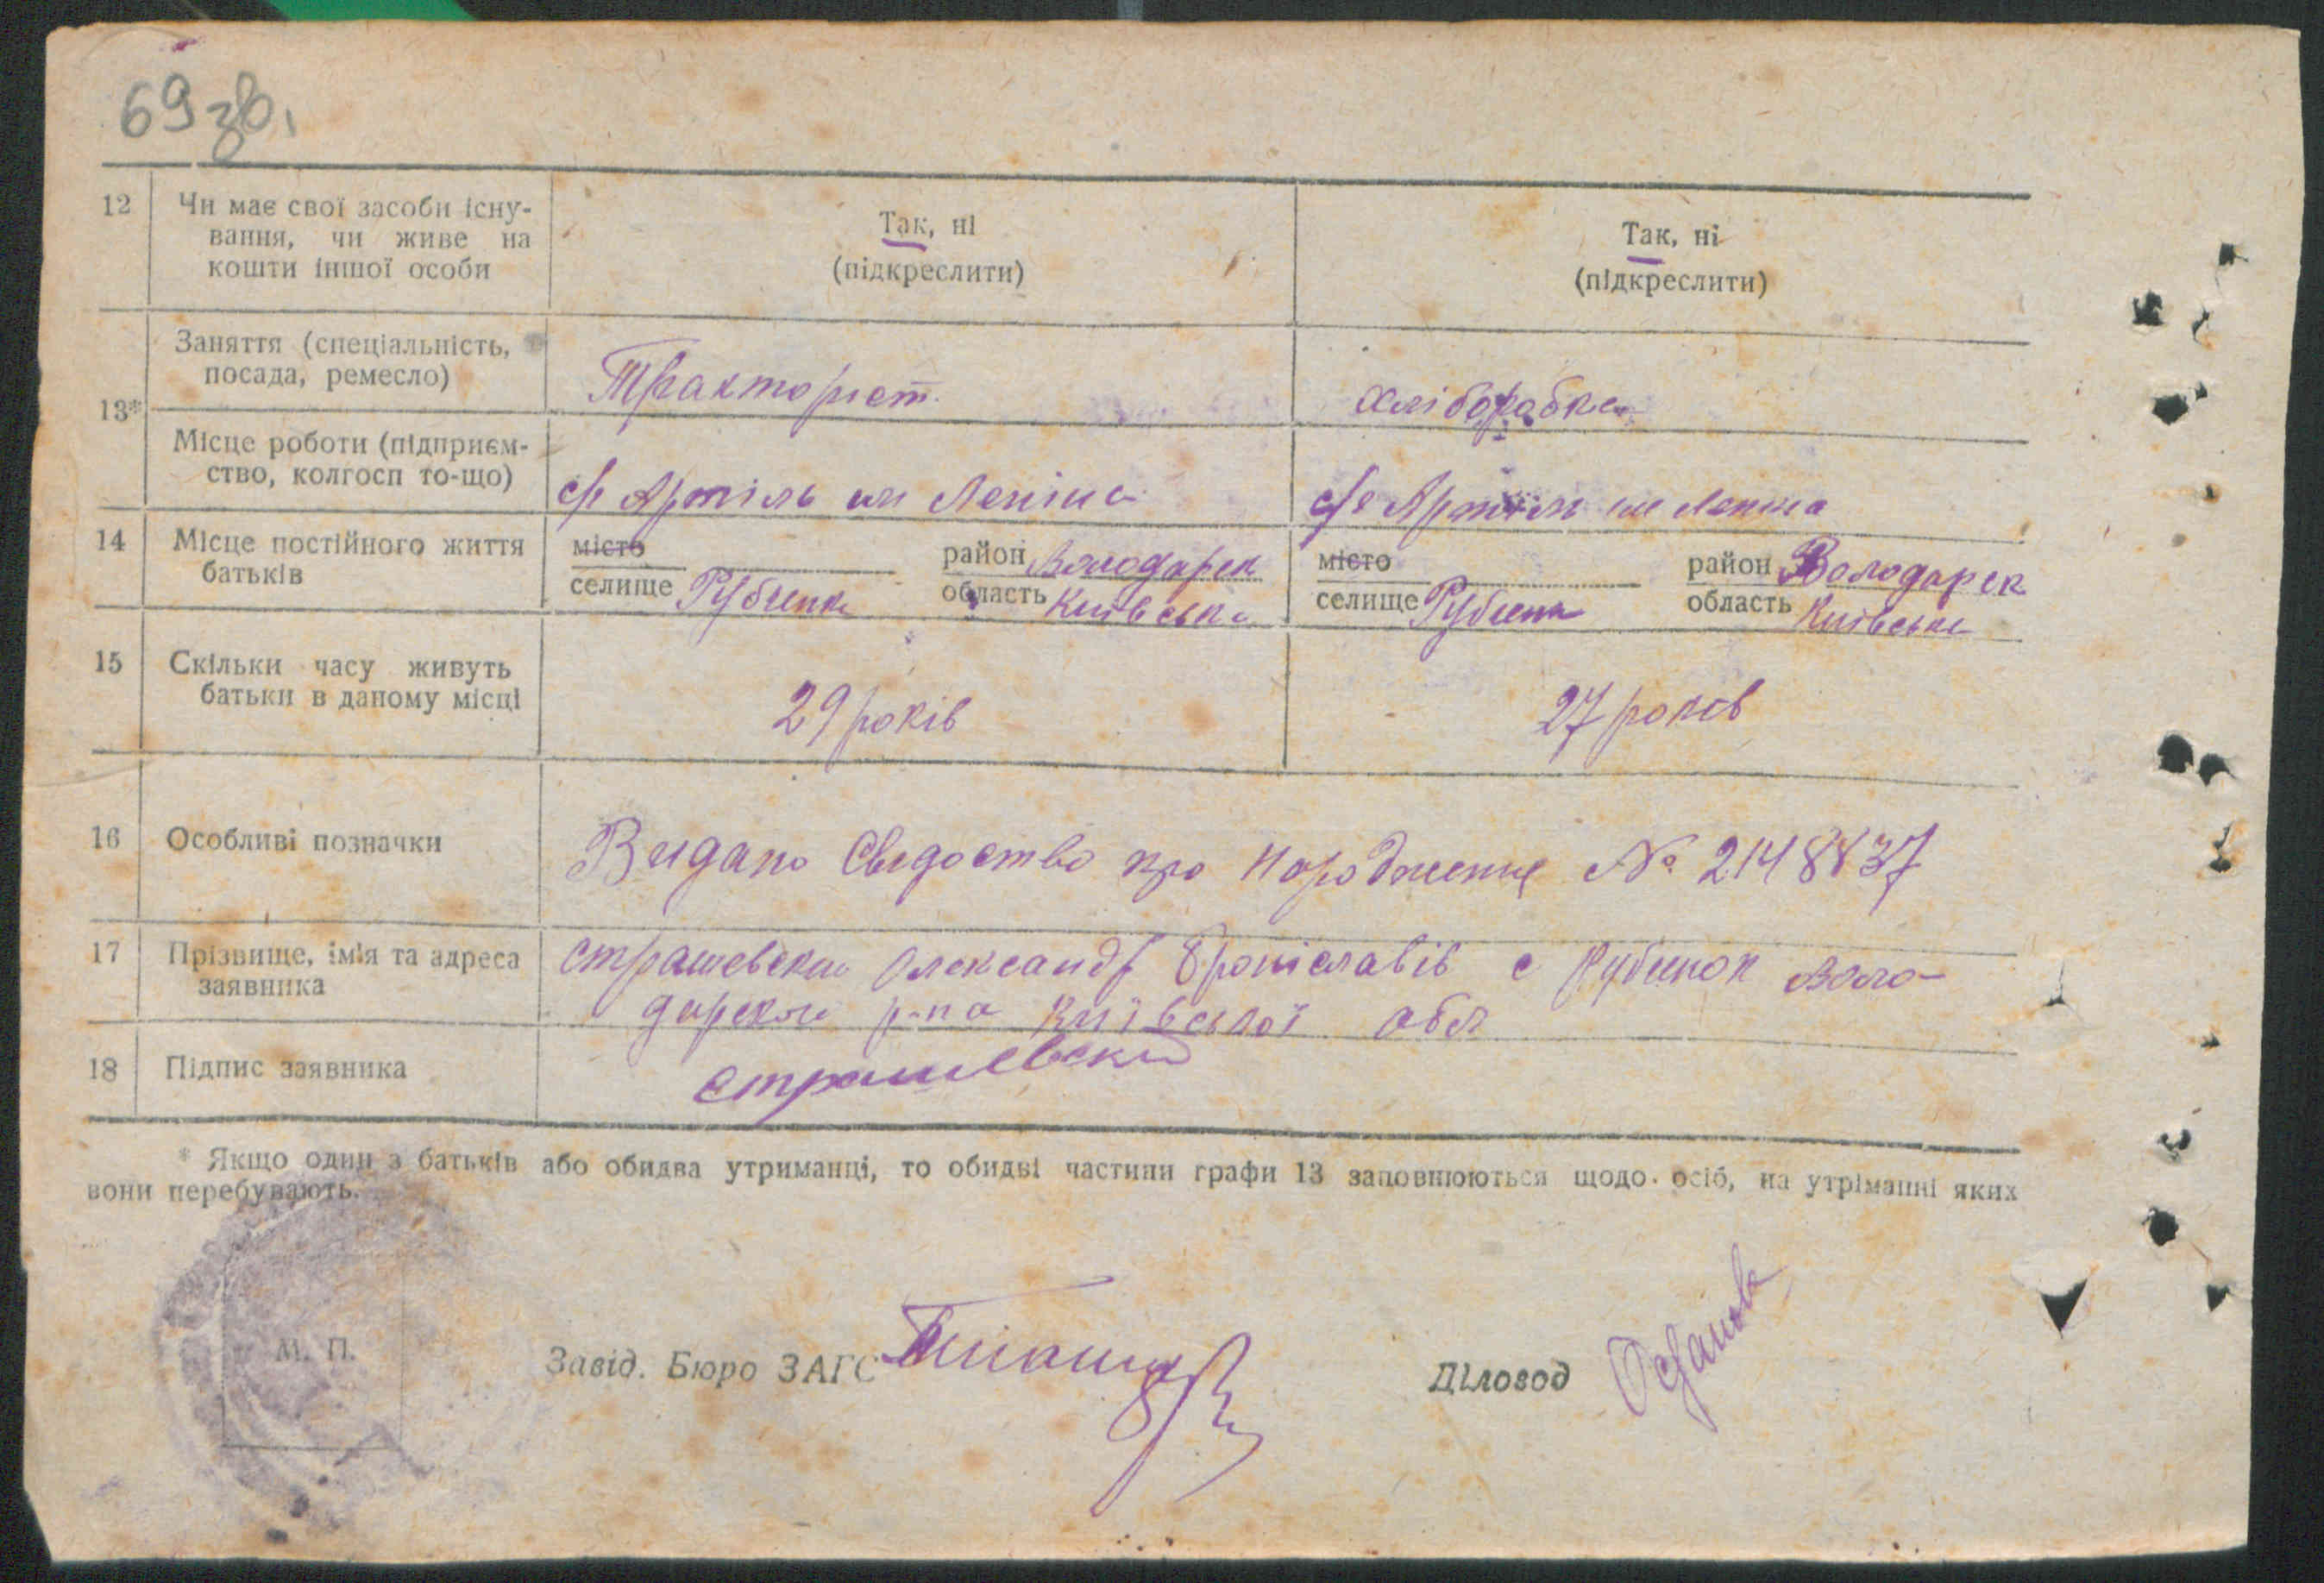 69 зв.
12 Чи має свої засоби існу-
вання, чи живе на
кошти іншої особи
Так, ні
(підкреслити)
Так, ні
(підкреслити)
13*
Заняття (спеціальність,
посада, ремесло)
Тракторист.
хліборобка
Місце роботи (підприєм-
ство, колгосп то-що)
с/г Артіль им Леніна
с/г Артіль им Леніна
14 Місце постійного життя
батьків
місто
район Володарск
селище Рубчинка
область Київська
місто
район Володарск
селище
область Київська
15 Скільки часу живуть
батьки в даному місці
29 років
27 років
16 Особливі позначки
Видано Свідоство про Народження № 2148837
17 Прізвище, ім'я та адреса
заявника
Страшевська Олександр Броніславів с Воло-
дарськ р-на Київської обл
18 Підпис заявника
Страшевский
* Якщо один з батьків або обидва утриманці, то обидві частини графи 13 заповнюються щодо осіб, на утріманні яких
вони перебувають.
М. П.
Завід. Бюро ЗАГС
Діловод